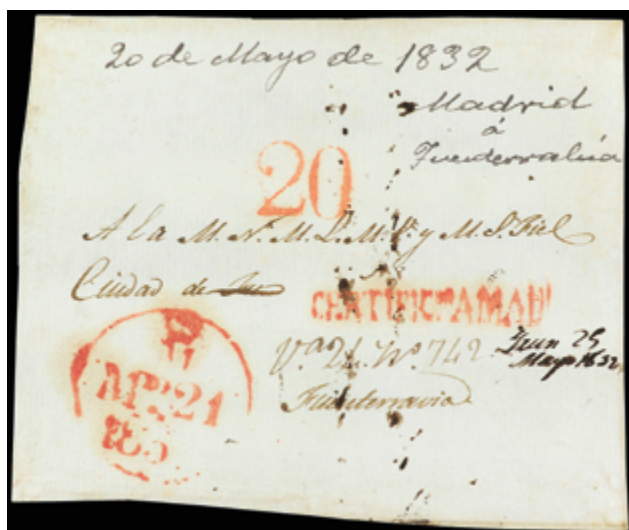 20 de Mayo de 1832
Madrid
à
Fuenterrabía
20
A la M. N. M. L. M. V. y M. S. Fiel
Ciudad de
Vª 24. Nº 742.
Irun 25
Mayo 1832
Fuenterravia
21